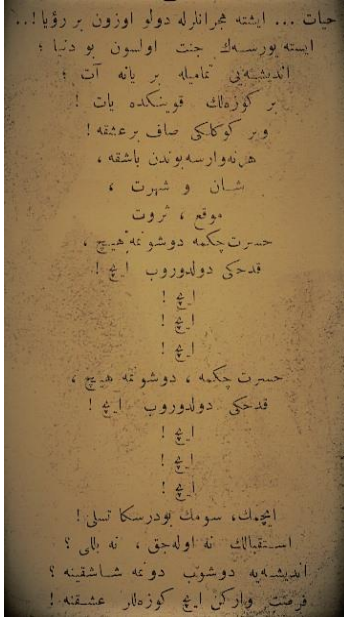 حیات ... ایشته هجرانلرله دولو اوزون بر رؤیا !..
ایسته یورسه‌ك جنت اولسون بو دنیا ؛
اندیشه‌یی تمامیله بر یانه آت ؛
بر كوزه‌لك قوینكده یات !
ویر كوكلكی صاف بر عشقه !
هرنه‌وارسه بوندن باشقه ،
شان و شهرت ،
موقع ، ثروت
حسرت چكمه دوشونمه هیچ ،
قدحكی دولدوروب ایچ !
ایچ !
ایچ !
ایچ !
حسرت چكمه ، دوشونمه هیچ ،
قدحكی دولدوروب ایچ !
ایچ !
ایچ !
ایچ !
ایچمك، سومك بودر سكا تسلی !
استقبالك نه اوله‌جق ، نه بللی ؟
اندیشه‌یه دوشوب دونمه شاشقینه ؟
فرصت واركن ایچ كوزه‌للر عشقنه !